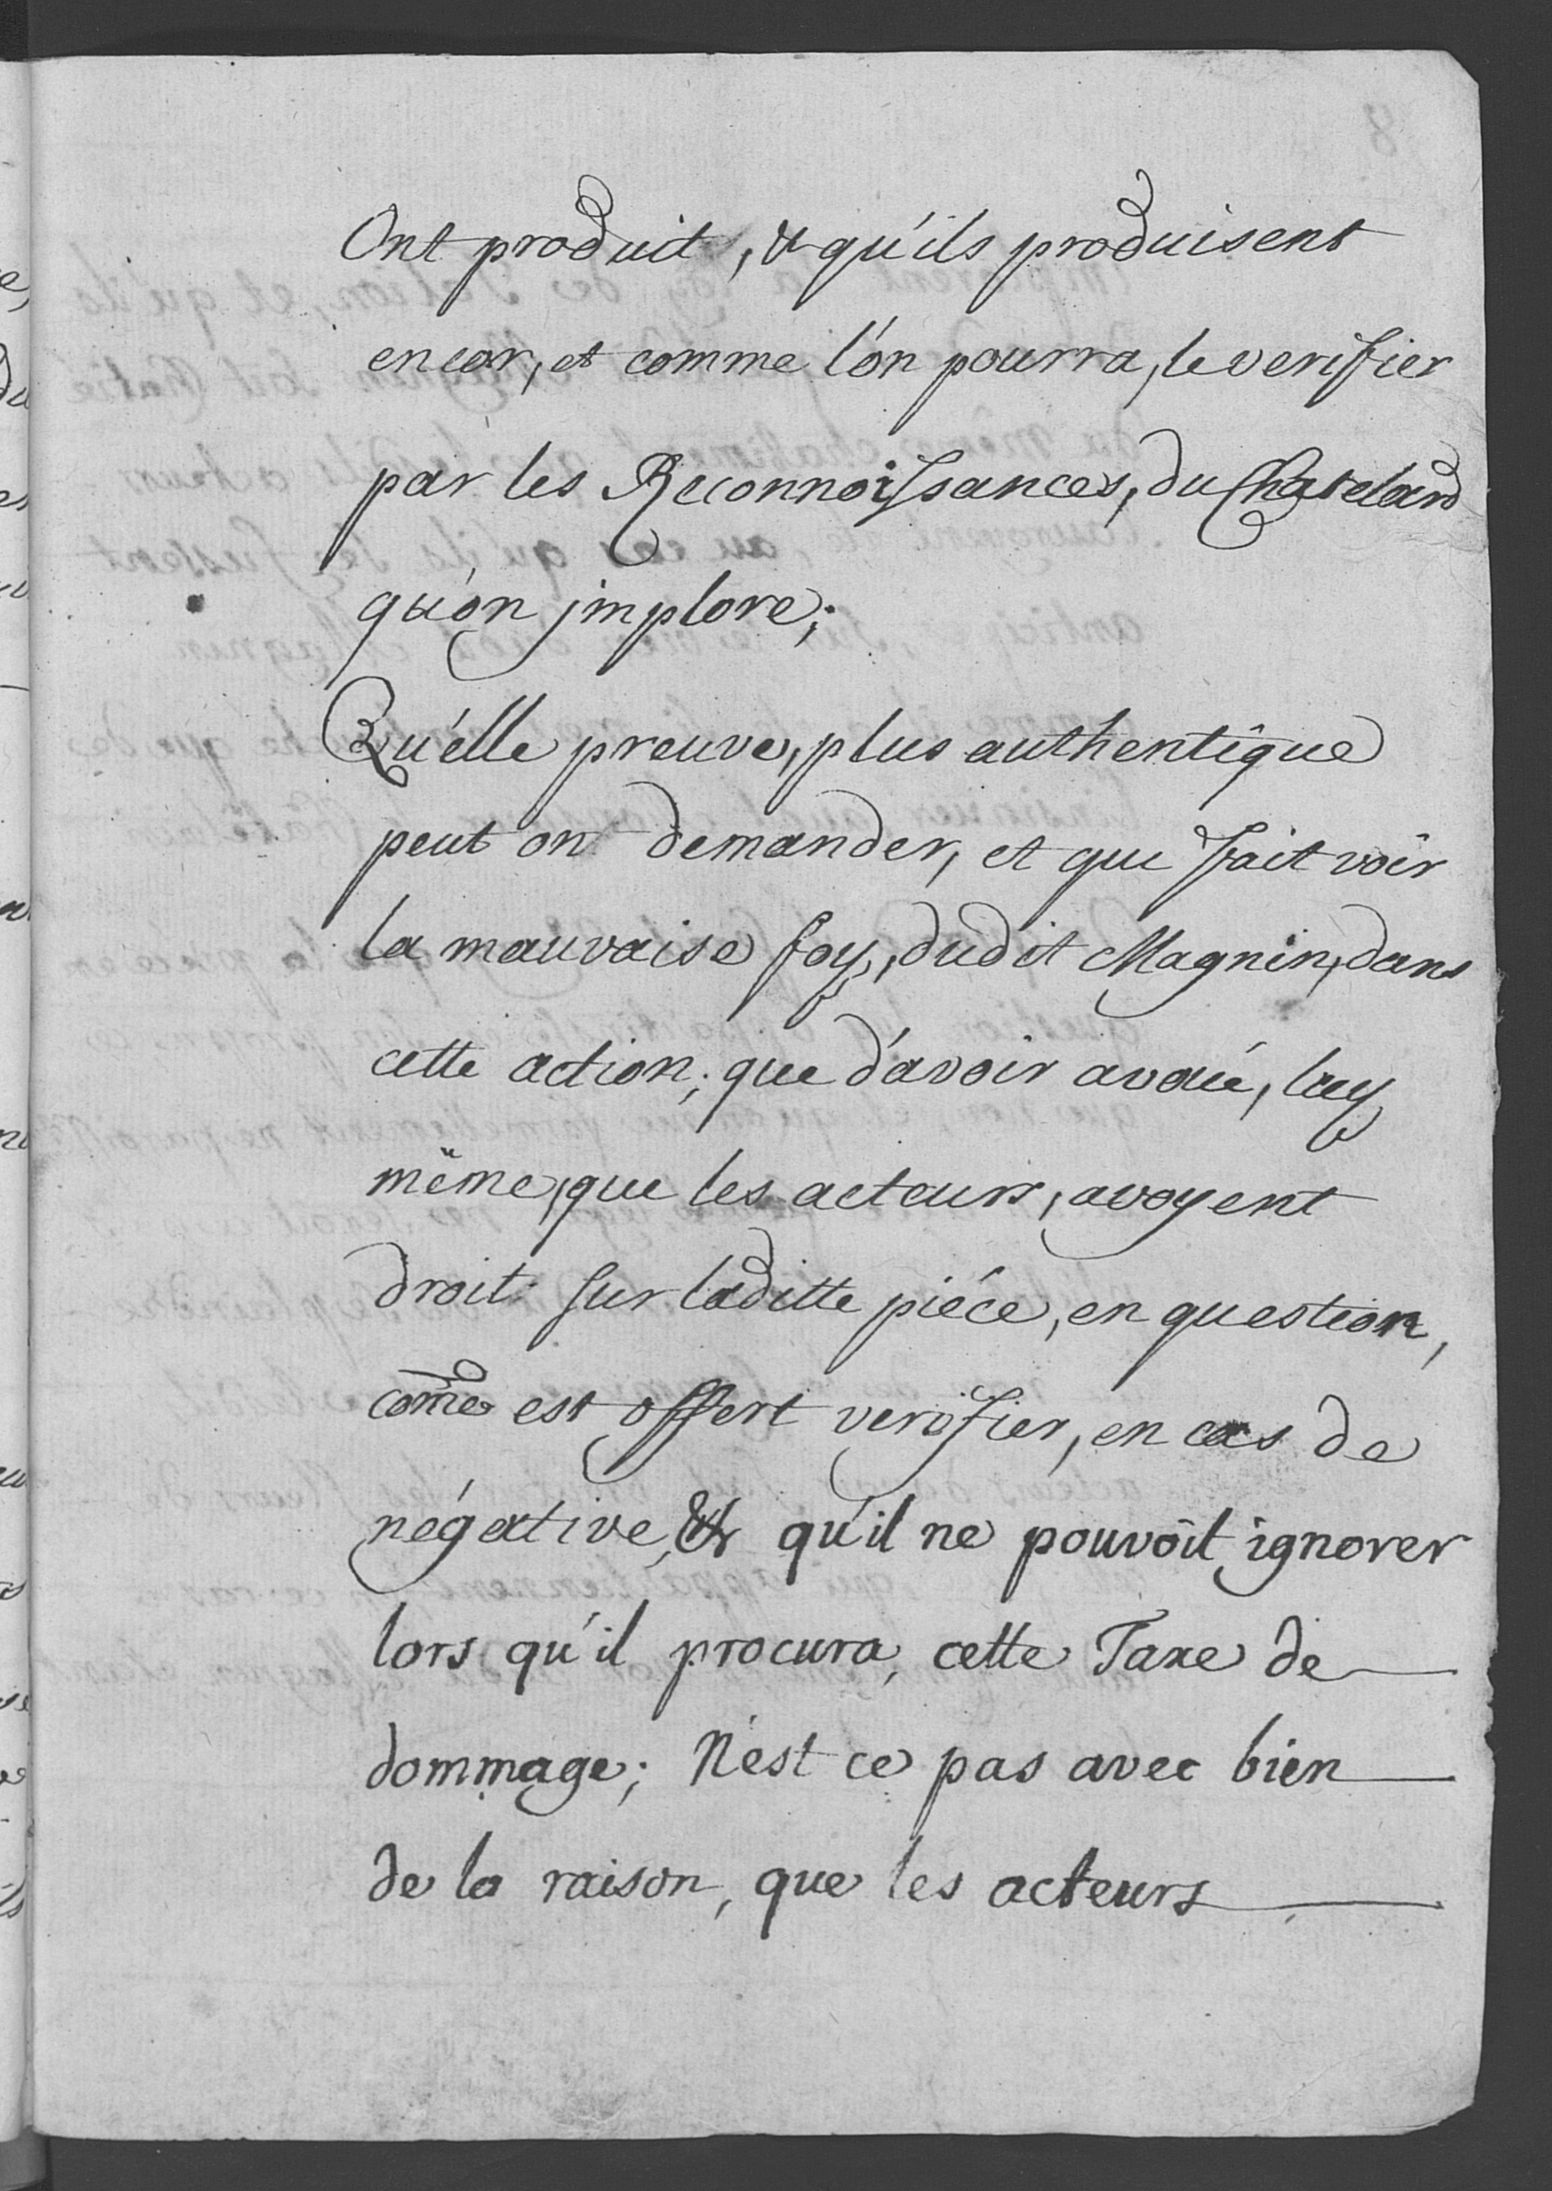 Ont produit, & qu'ils produisent
encor, et comme l'on pourra, le verifier
par les Reconnoissances, du Chatelard
qu'on jmplore;
Qu'elle preuve, plus authentique
peut on demander, et que fait voir
la mauvaise foy, dudit Magnin, dans
cette action; que d'avoir avoüé, luy
même, que les acteurs, avoyent
droit sur laditte piéce, en question,
come est offert verifier, en cas de
négative, & qu'il ne pouvoit ignorer
lors qu'il procura, cette Taxe de
dommage; N'est ce pas avec bien
de la raison, que les acteurs